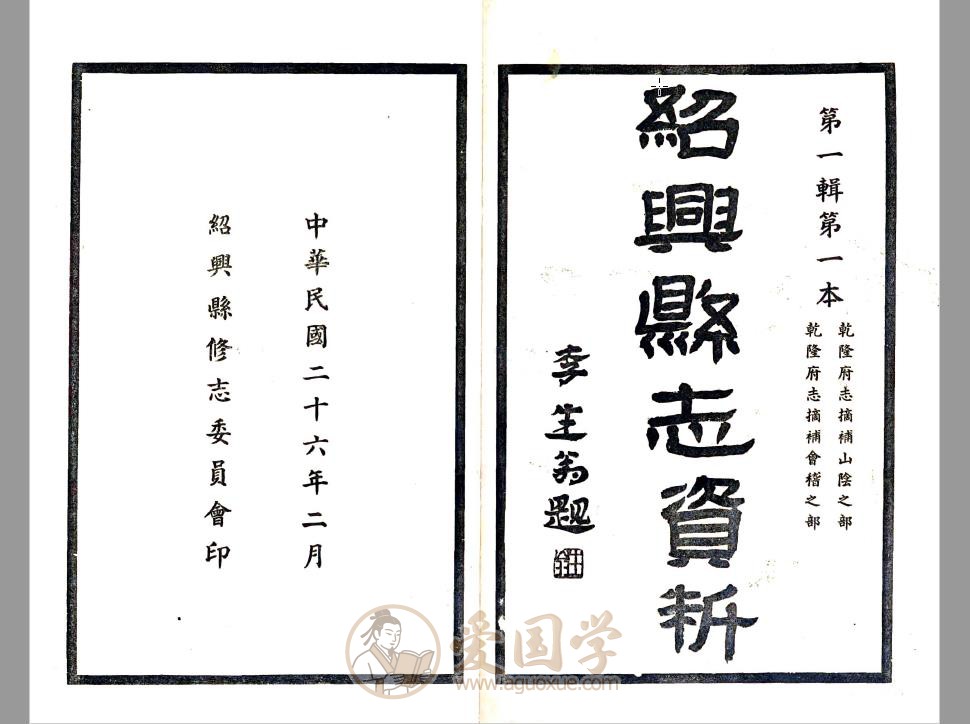 第一輯第一本
乾隆府志摘補山陰之部
乾隆府志摘補會稽之部
紹興縣志資料
李生翁題
中華民國二十六年二月
紹興縣修志委員會印
爱国学
www.aguoxue.com